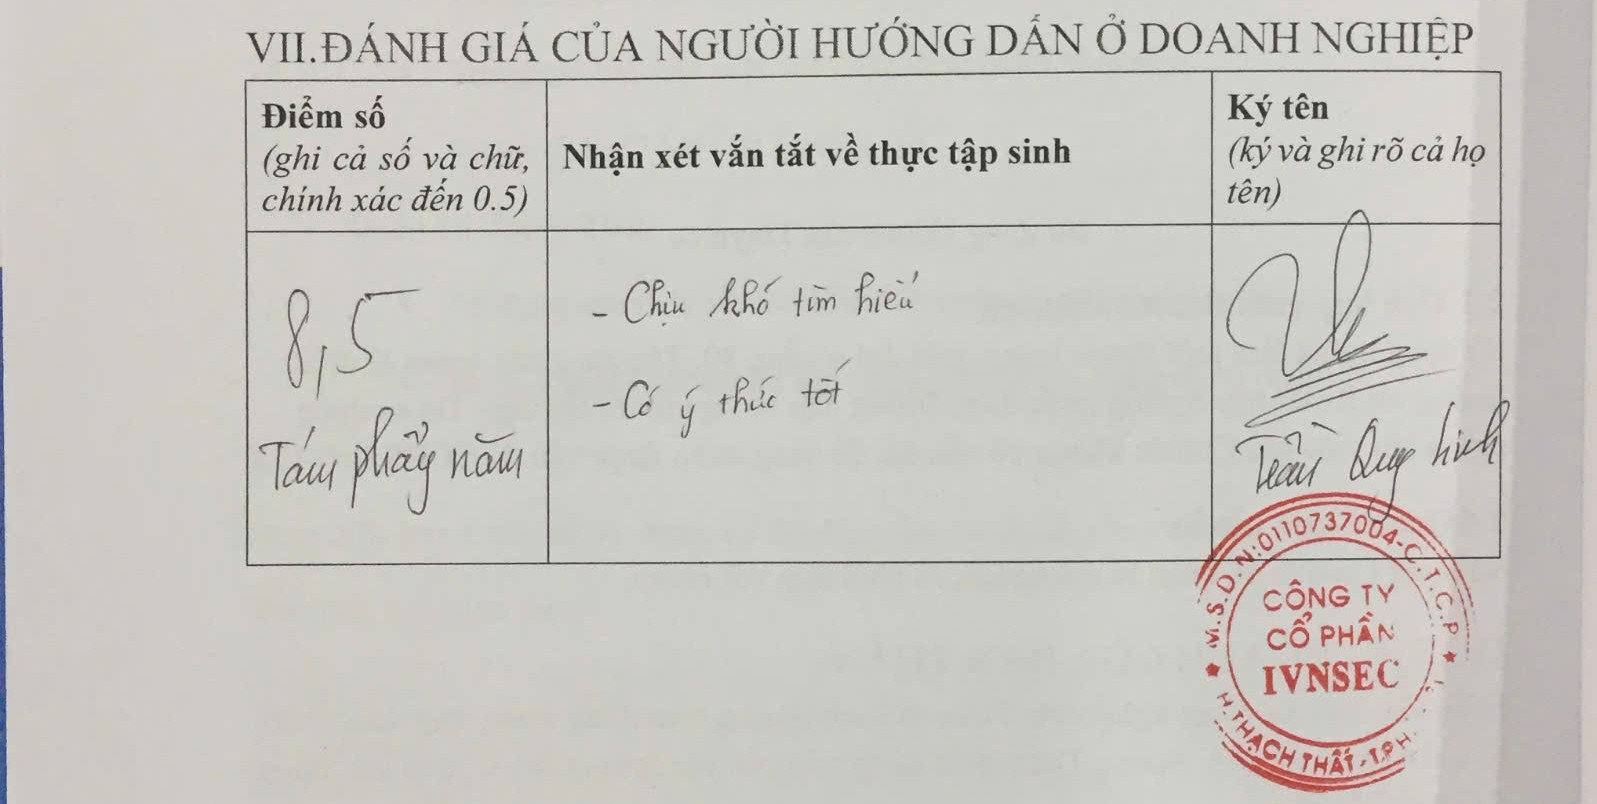 VII.ĐÁNH GIÁ CỦA NGƯỜI HƯỚNG DẪN Ở DOANH NGHIỆP
Điểm số
(ghi cả số và chữ,
chính xác đến 0.5)
Nhận xét vắn tắt về thực tập sinh
Ký tên
(ký và ghi rõ cả họ
tên)
8,5
Tám phẩy năm
- Chịu khó tìm hiểu
- Có ý thức tốt
Trần Quy
M.S.D.N:0110737004-C.T.C.P
CÔNG TY
CỔ PHẦN
IVNSEC
H.THẠCH THẤT-T.P.H.